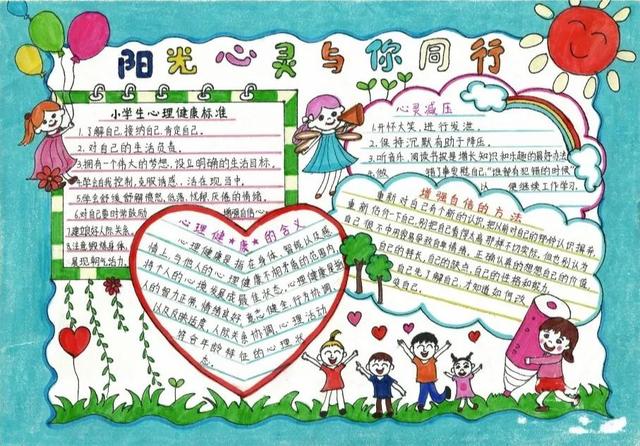 阳光心灵与你同行
小学生心理健康标准
1.了解自己接纳自己,肯定自己。
2.对自己的生活负责。
3.拥有一个伟大的梦想,设立明确的生活目标。
4.学会自我控制,克服诱惑,活在现当中。
5.学会舒缓愤怒,低落,忧秘,厌倦的情绪。
6.对自己要时常鼓励 增强自信心
7.建立良好人际关系。
8.注意锻炼身体,
呈现朝气活力。
心理健★康★的含义
心理健康是指在身体、智能以及感
情上,与他人的心理健康不相矛盾的范围内
将个人的心境发展成最佳状态。心理健康是指
人的智力正常,情绪良好,意志健全,行为协调,
以及反映适度,人际关系协调,心理活动
符合年龄特征的心理状
态。
心灵减压
1.开怀大笑,进行发泄。
2.保持沉默有助于降压。
3.听音乐,阅读书报是增长知识和乐趣的最好办法
4.做 错了事安慰自己"谁都有犯错的时候"
便继续工作学习。
增强自信的方法
重新对自己有个新的认识,把从前对自己的那种认识抛弃
重新估价一下自己,别把自己看得太高那样不切实际,但也别认为
自己很不中用容易导致自卑情绪,正确认真的想想自己的价值
自己的特长,自己的缺点,自己的性格如何
自己先了解自己,才知道如何改
变自己。